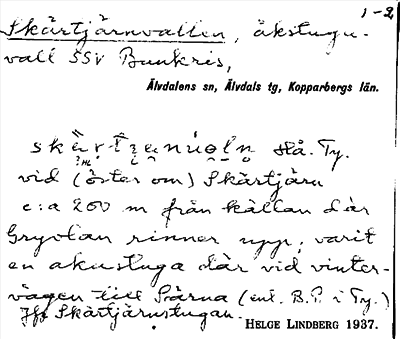 1-2
Skärtjärnvallen, åkstugu-
vall SSV Bunkris,
Älvdalens sn, Älvdals tg, Kopparbergs län.
Hå. Ty.
vid (öster om) Skärtjärn
c:a 200 m från källan där
Gryvlan rinner upp, varit
en åkustuga där vid vinter-
vägen till Särna (enl. B.P. i Ty.)
Jfr Skärtjärnstugan.
HELGE LINDBERG 1937.